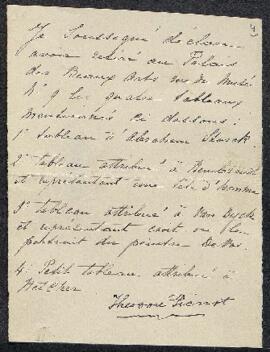 Je soussigné déclare
avoir retiré au Palais
des Beaux Arts rue du Musée
N° 9 les quatre tableaux
mentionnés ci dessous:
1° tableau d'Abraham Storck
2° tableau attribué à
et représentant une tête d'homme
3° tableau attribué à Van Dyck
et représentant
portrait du peintre de Vos.
4. Petit tableau attribué à
Theodore